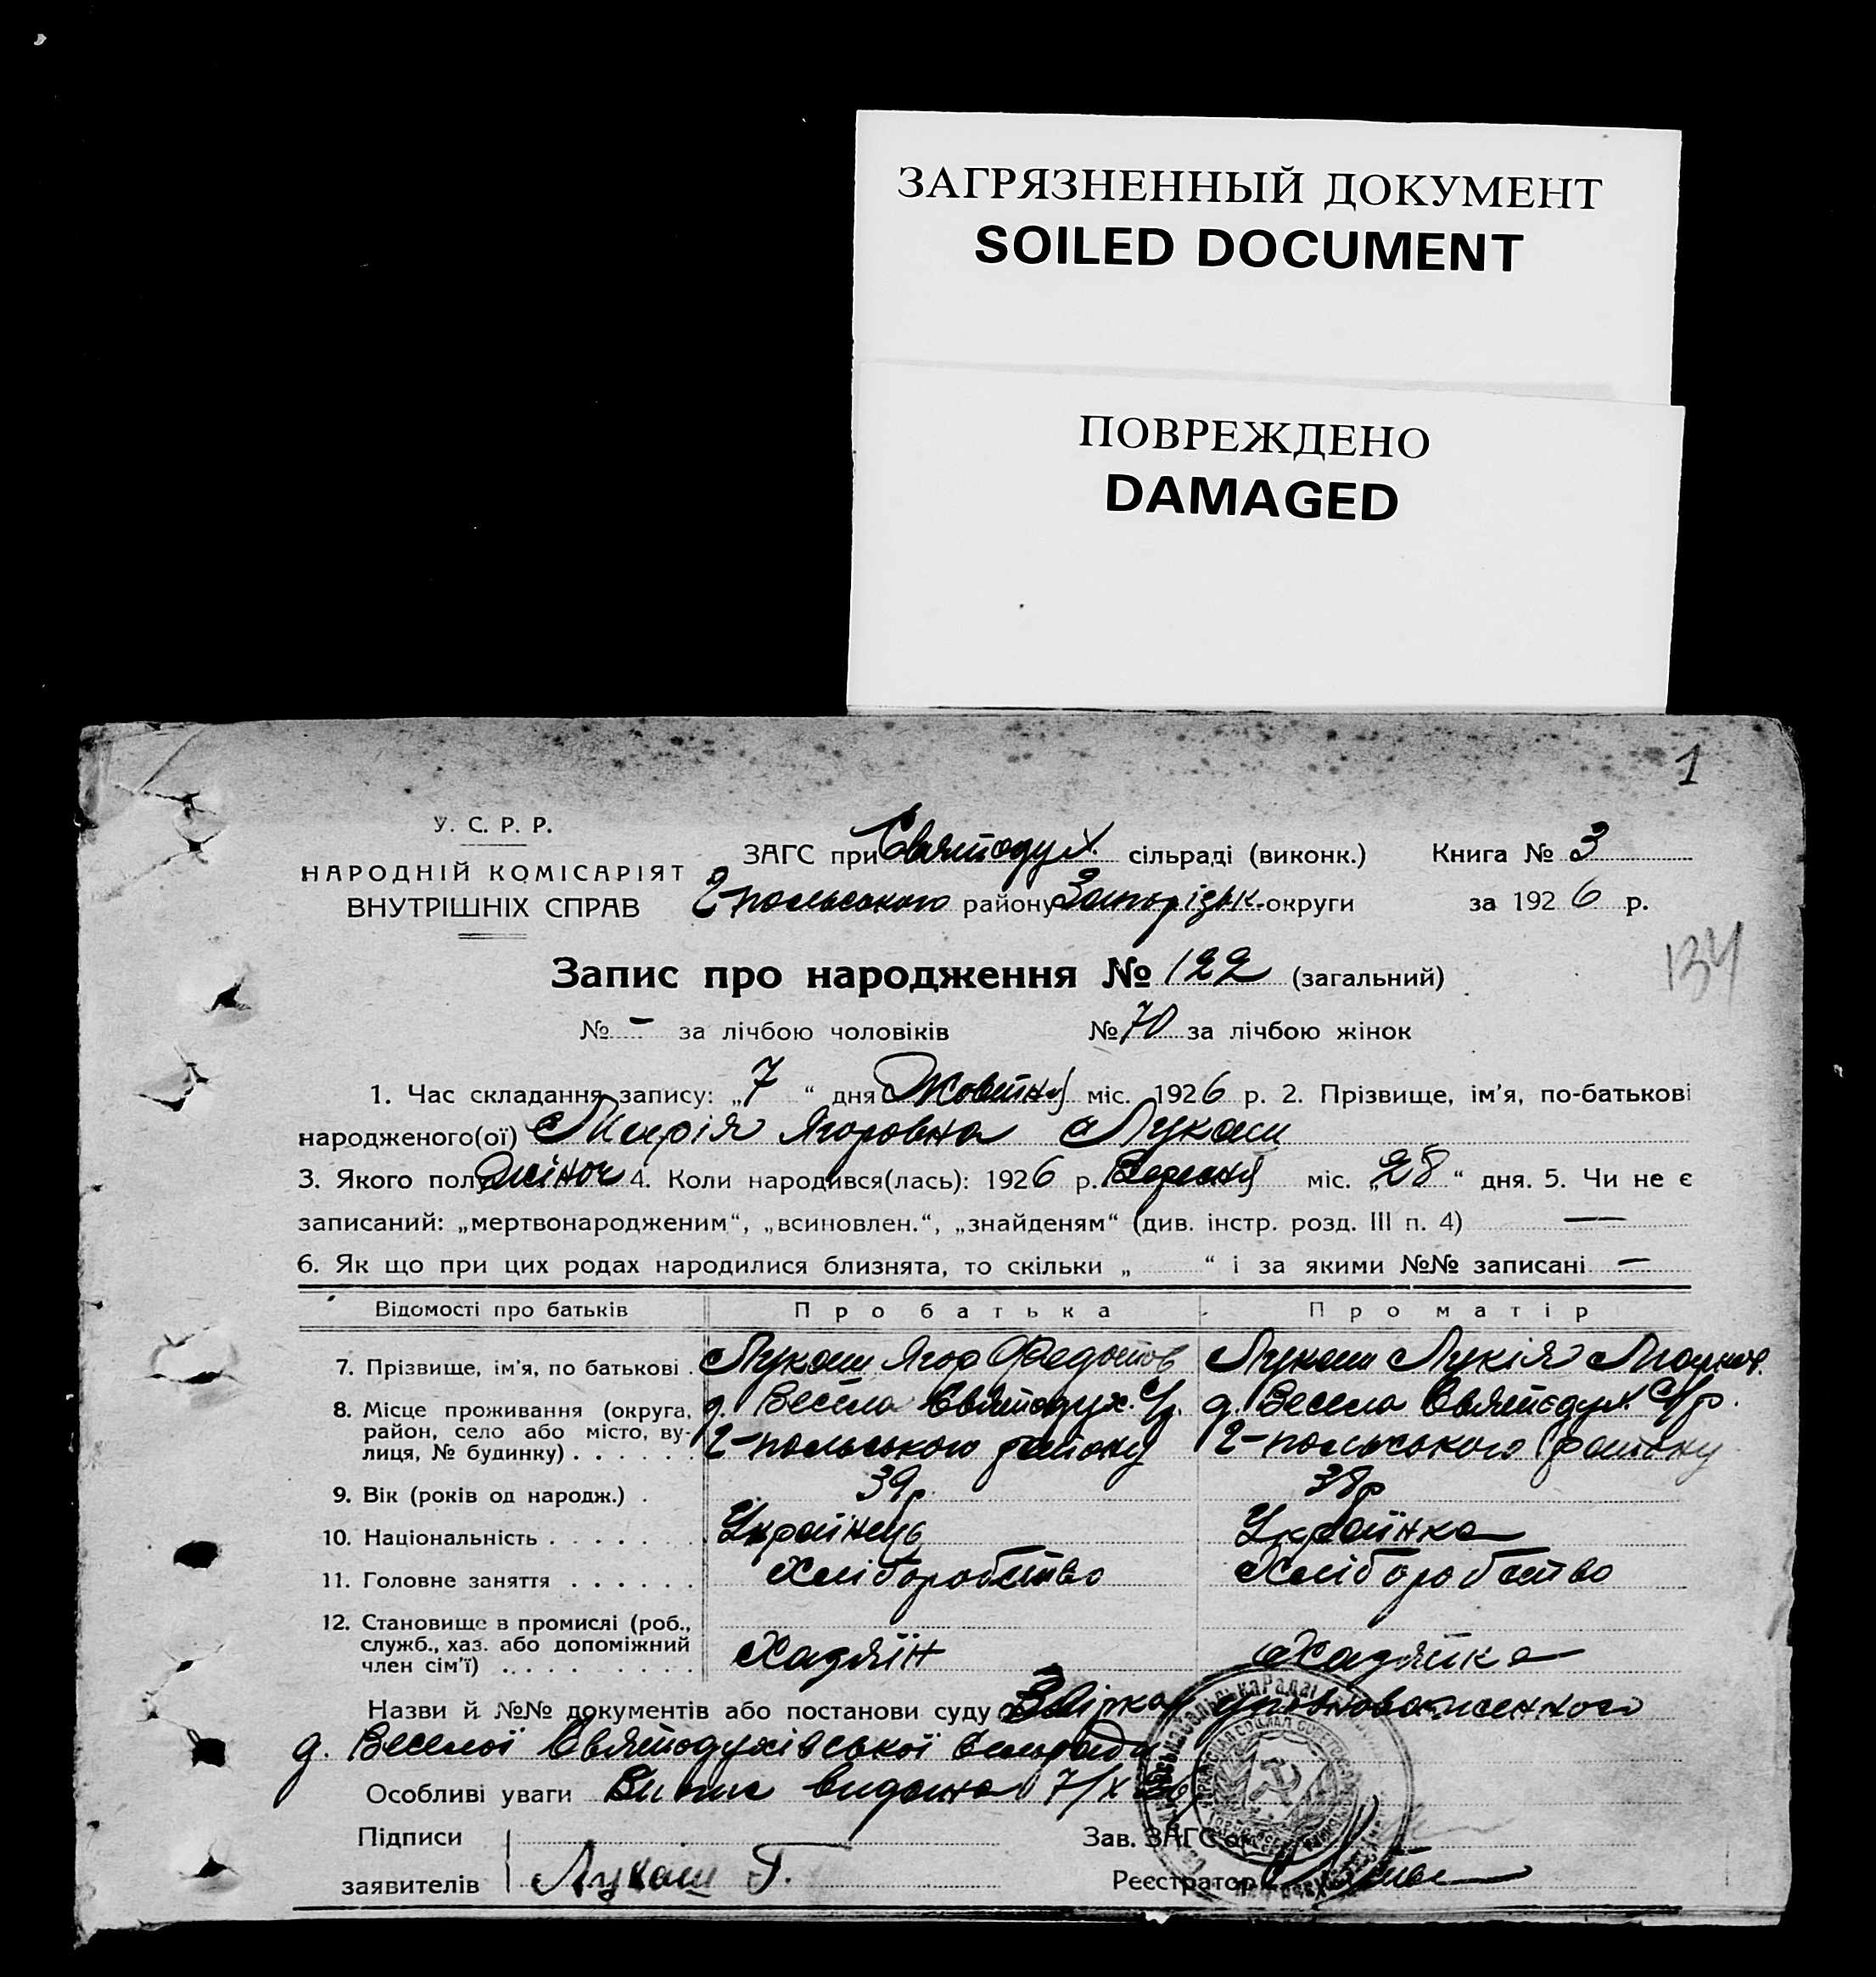 ЗАГРЯЗНЕННЫЙ ДОКУМЕНТ
SOILED DOCUMENT
ПОВРЕЖДЕНО
DAMAGED
1
У. С. Р. Р.
НАРОДНІЙ КОМІСАРІЯТ
ВНУТРІШНІХ СПРАВ
ЗАГС при Святодух. сільраді (виконк.) Книга № 3
2-польського району Запорізьк. округи за 1926 р.
134
Запис про народження № 122 (загальний)
№ - за лічбою чоловіків № 70 за лічбою жінок
1. Час складання запису: „7“ дня Жовтня міс. 1926 р. 2. Прізвище, ім'я, по-батькові
народженого(ої) Марія Ягоровна Лукаш
3. Якого полу жіноч 4. Коли народився(лась): 1926 р. Вересня міс. „28“ дня. 5. Чи не є
записаний: „мертвонародженим“, „всиновлен.“, „знайденям“ (див. інстр. розд. III п. 4) —
6. Як що при цих родах народилися близнята, то скільки „ “ і за якими №№ записані —
Відомості про батьків Про батька Про матір
7. Прізвище, ім'я, по батькові . Лукаш Ягор Федотов Лукаш Лукія
8. Місце проживання (округа, д. Весела Святодух. С/р. д. Весела Святодух. С/р.
район, село або місто, ву- 2-польського району 2-польського району
лиця, № будинку) . . . . . .
9. Вік (років од народж.) . 39р. 38р
10. Національність . . . . . . . Українець Українка
11. Головне заняття . . . . . . Хліборобство Хліборобство
12. Становище в промислі (роб.,
служб., хаз. або допоміжний Хазяїн Хазяйка
член сім'ї) . . . . . . . . .
Назви й №№ документів або постанови суду уповноваженного
д. Веселої Святодухівської Сільради
Особливі уваги Випис видана 7/X
Підписи Зав. ЗАГС'ом
заявителів Лукаш Г. Реєстратор